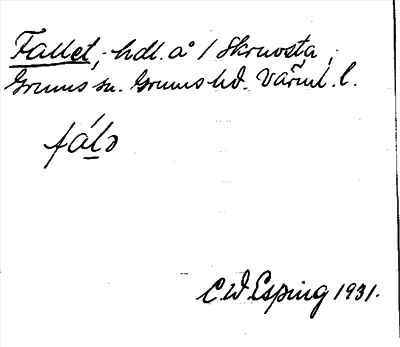 Fallet, hdl. å 1 Skruvsta,
Grums sn. Grums hd. Värml. l.
fálɔ
C W Esping 1931.